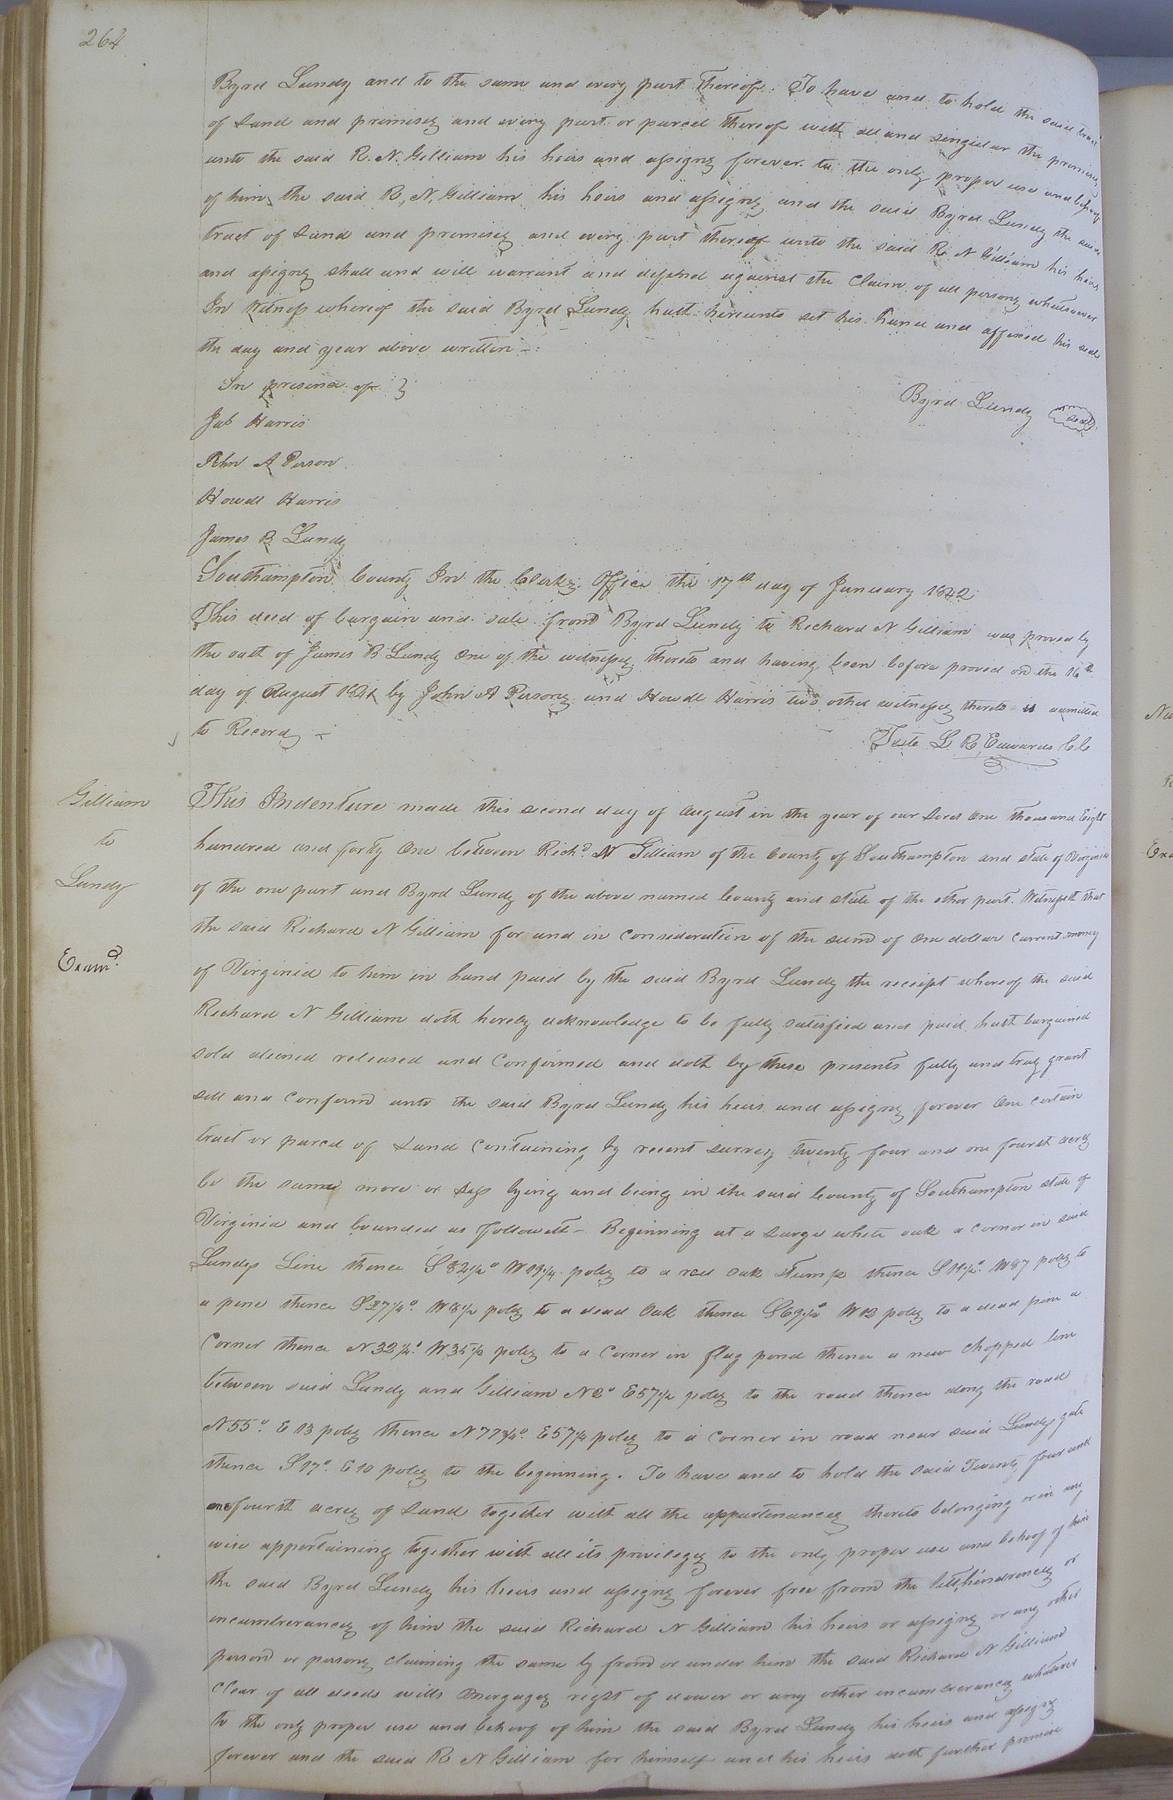 264
Byrd Lundy and to the same and every part thereof: To have and to hold the said tract
of Land and premises and every part or parcel thereof with all and singular the premises
unto the said R. N. Gilliam his heirs and assigns forever to the only proper use and behoof
of him the said R, N, Gilliam his heirs and assigns and the said Byrd Lundy the said
tract of Land and premises and every part thereof unto the said R N Gilliam his heirs
and assigns shall and will warrant and defend against the claim of all persons whatsoever
In witness whereof the said Byrd Lundy hath hereunto set his hand and affixed his seal
the day and year above written -:
In presence of }
Byrd Lundy seal
Jas Harris
John A Person
Howell Harris
James B Lundy
Southampton County In the Clerks Office the 17th day of January 1842
This deed of bargain and sale from Byrd Lundy to Richard N Gilliam was proved by
the oath of James B Lundy one of the witnesses thereto and having been before proved on the 16th
day of August 1841 by John A Persons and Howell Harris two other witnesses thereto is admitted
to Record -
Teste L R Edwards CC
Gilliam
to
Lundy
Examd.
This Indenture made this second day of August in the year of our Lord one thousand Eight
hundred and forty One between Richd. N Gilliam of the County of Southampton and state of Virginia
of the one part and Byrd Lundy of the above named County and state of the other part. Witnesseth that
the said Richard N Gilliam for and in consideration of the sum of one dollar current money
of Virginia to him in hand paid by the said Byrd Lundy the receipt whereof the said
Richard N Gilliam doth hereby acknowledge to be fully satisfied and paid, hath bargained
sold aliened released and confirmed and doth by these presents fully and truly grant
sell and confirm unto the said Byrd Lundy his heirs and assigns forever One certain
tract or parcel of Land containing by recent survey twenty four and one fourth acres
be the same more or less lying and being in the said County of Southampton state of
Virginia and bounded as followeth - Beginning at a Large white oak a corner in said
Lundys Line thence S 82 1/2° W 13 1/4 poles to a red oak stump thence W 87 poles to
a pine thence W 8 1/2 poles to a dead Oak thence W 13 poles to a dead pine a
Corner thence W 35 1/2 poles to a Corner in flag pond thence a new chopped line
between said Lundy and Gilliam E 57 1/2 poles to the road thence along the road
N 55° E 13 poles thence N 77 3/4° E 57 1/2 poles to a corner in road near said Lundys gate
thence S 17° E 10 poles to the beginning. To have and to hold the said Twenty four and
one fourth acres of Land together with all the appurtenances thereto belonging or in any
wise appertaining together with all its privileges to the only proper use and behoof of him
the said Byrd Lundy his heirs and assigns forever free from the hindrances or
incumbrances of him the said Richard N Gilliam his heirs or assigns or any other
person or persons claiming the same by from or under him the said Richard N Gilliam
Clear of all deeds wills Morgages right of dower or any other incumbrances whatever
to the only proper use and behoof of him the said Byrd Lundy his heirs and assigns
forever and the said R N Gilliam for himself and his heirs doth further promise